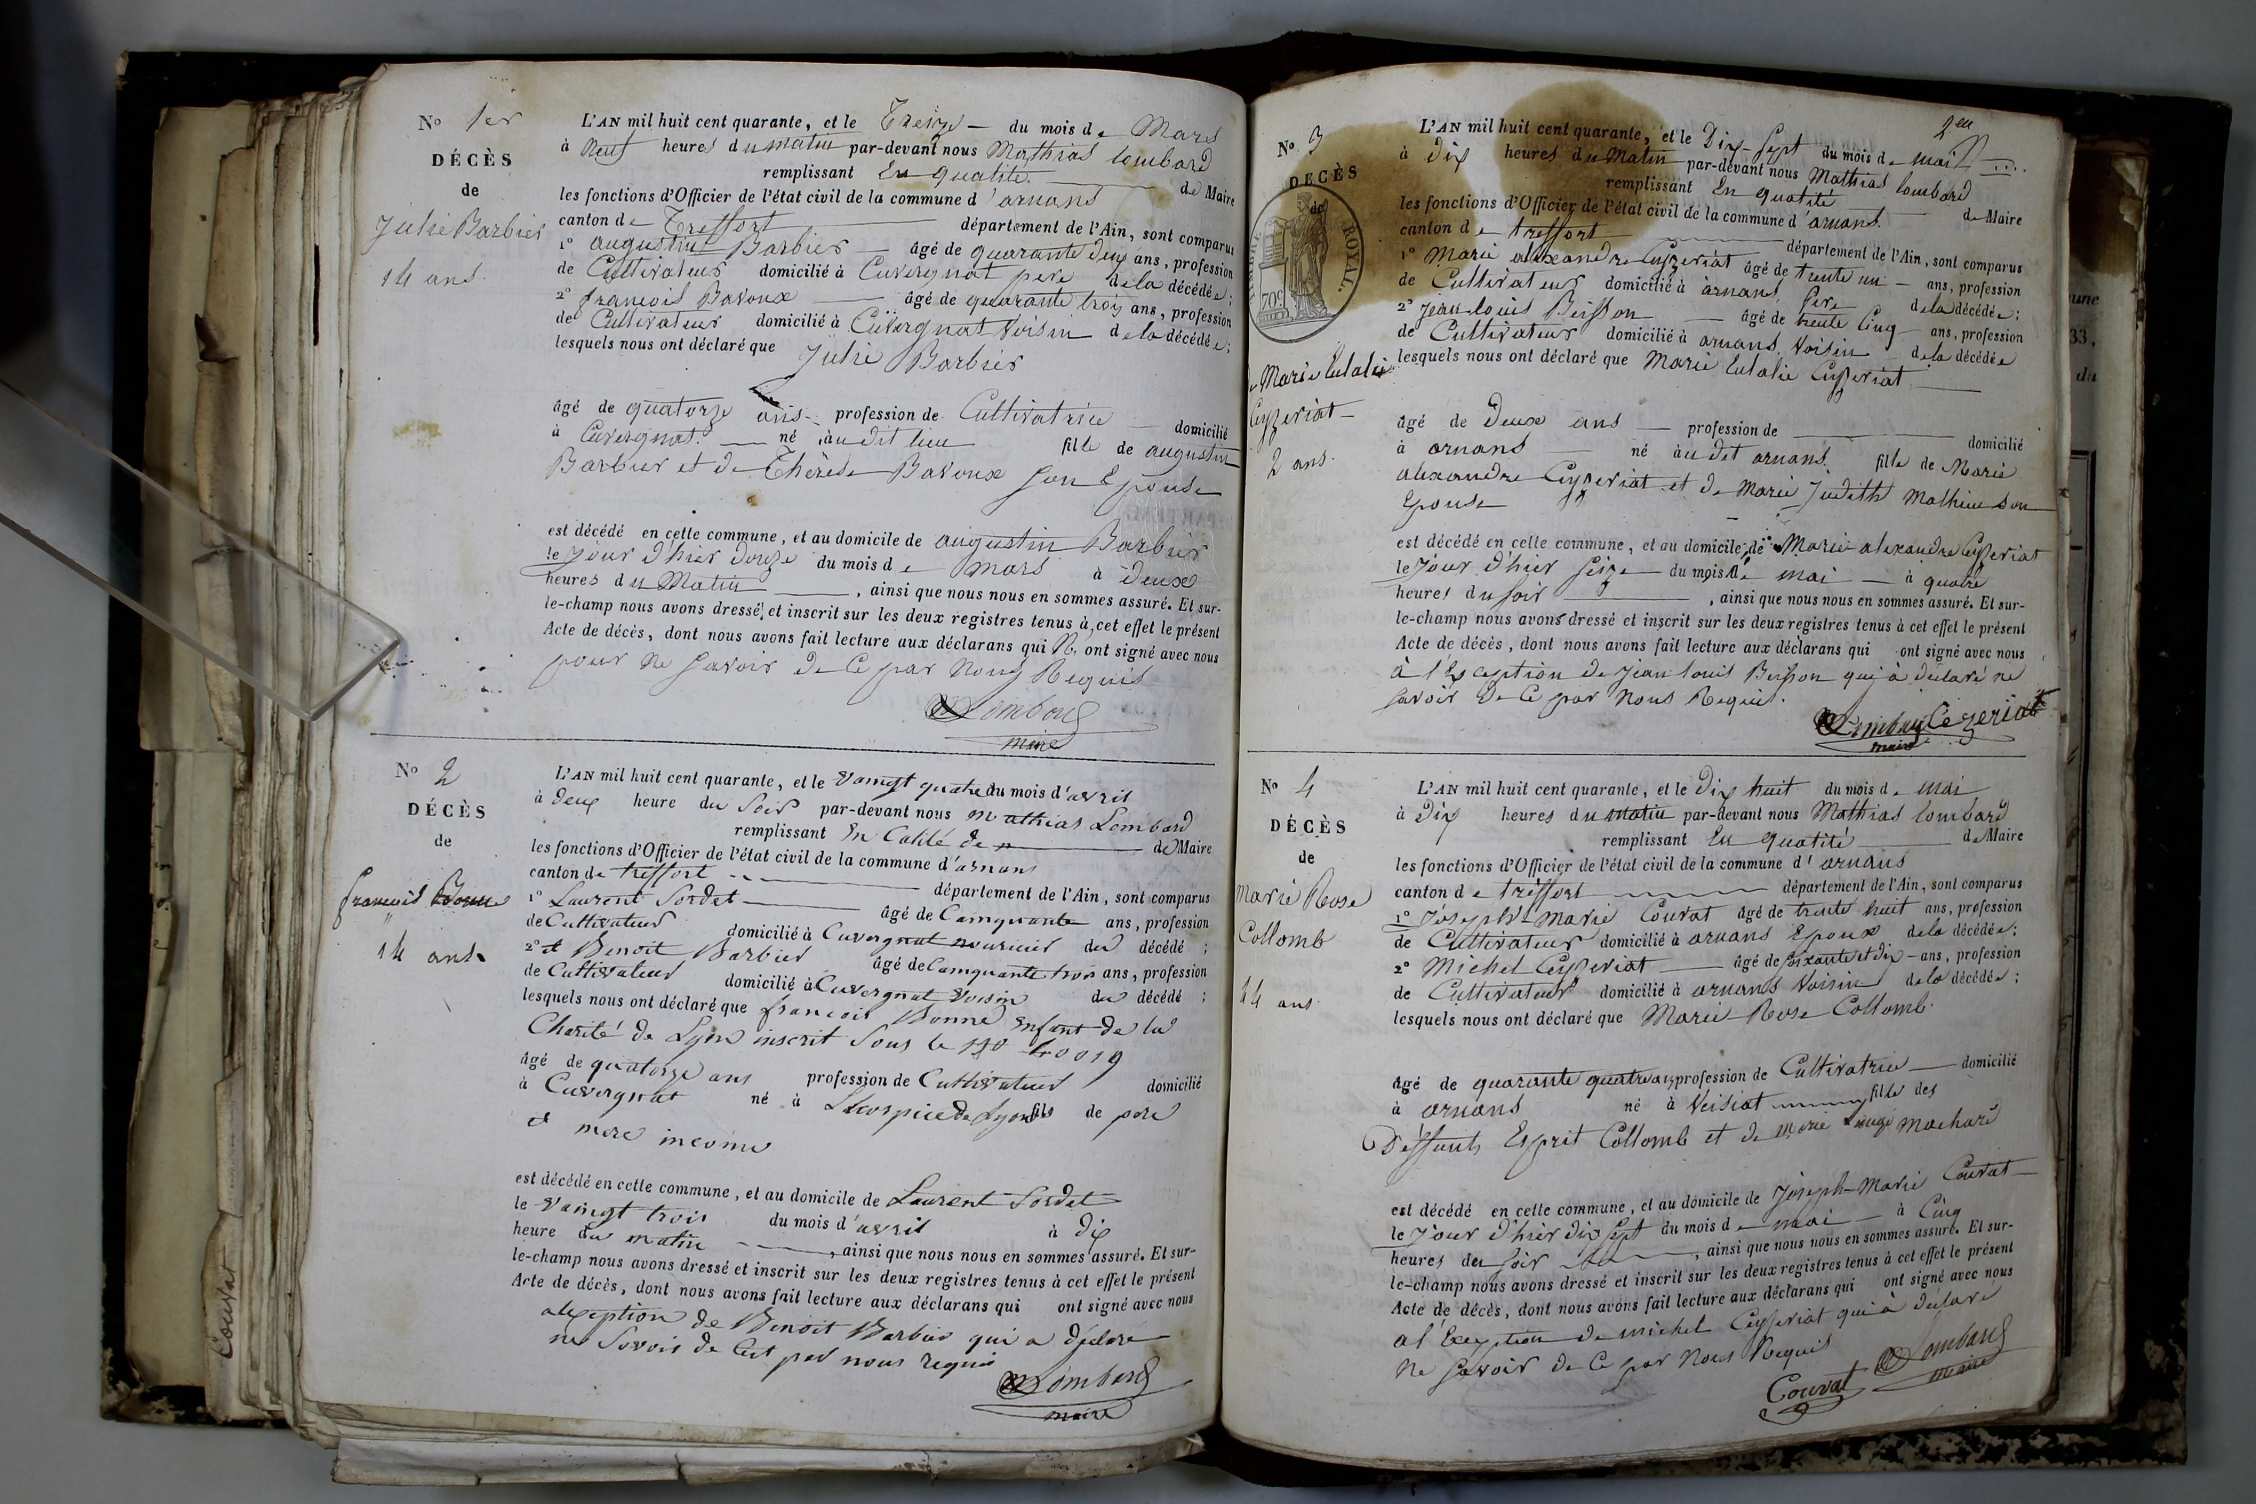 No 1er
DÉCÈS
de
Julie Barbier
14 ans.
L'AN mil huit cent quarante, et le Treize du mois de Mars
à Neuf heures du matin par-devant nous Mathias lombard
remplissant En qualité de Maire
les fonctions d'Officier de l'état civil de la commune d'arnans
canton de Treffort département de l'Ain, sont comparus
1° augustin Barbier âgé de quarante deux ans, profession
de Cultivateur domicilié à Cuvergnat pere de la décédée;
2° françois Bavoux âgé de quarante trois ans, profession
de Cultivateur domicilié à Cuvergnat Voisin de la décédée;
lesquels nous ont déclaré que Julie Barbier
âgé de quatorze ans profession de Cultivatrice domicilié
à Cuvergnat. né àu dit lieu fille de augustin
Barbier et de Thérèse Bavoux son Epouse
est décédé en cette commune, et au domicile de augustin Barbier
le Jour d'hier douze du mois de mars à deux
heures du Matin, ainsi que nous nous en sommes assuré. Et sur-
le-champ nous avons dressé et inscrit sur les deux registres tenus à cet effet le présent
Acte de décès, dont nous avons fait lecture aux déclarans qui N. ont signé avec nous
pour ne savoir de Ce par Nous Requis
Lombard
maire
No 2
DÉCÈS
de
francois Bonne
14 ans
L'AN mil huit cent quarante, et le vaingt quatre du mois d'avril
à deux heure du Soir par-devant nous mathias Lombard
remplissant En Calité de de Maire
les fonctions d'Officier de l'état civil de la commune d'arnans
canton de treffort département de l'Ain, sont comparus
1° Laurent Sordet âgé de Camquante ans, profession
de Cultivateur domicilié à Cuvergnat nouricier du décédé;
2° et Benoit Barbier âgé de Camquante trois ans, profession
de Cultivateur domicilié à Cuvergnat Voisin du décédé;
lesquels nous ont déclaré que francois Bonne enfant de la
Charité de Lyon inscrit Sous le
âgé de quatorze ans profession de Cultivateur domicilié
à Cuvergnat né à Lhospice de Lyon fils de pere
et mere inconu
est décédé en cette commune, et au domicile de Laurent Sordet
le vaingt trois du mois d'avril à dix
heure du matin, ainsi que nous nous en sommes assuré. Et sur-
le-champ nous avons dressé et inscrit sur les deux registres tenus à cet effet le présent
Acte de décès, dont nous avons fait lecture aux déclarans qui ont signé avec nous
alexeption de Benoit Barbier qui a déclare
ne Savoir de Cet par nous requis
Lombard
maire
Couvat
2eu
No 3
DÉCÈS
de
TIMBRE ROYAL.
70c
de Marie Eulalie
Ceyzeriat
2 ans.
L'AN mil huit cent quarante, et le Dix-Sept du mois de mai
à Dix heures du Matin par-devant nous Mathias lombard
remplissant En qualité de Maire
les fonctions d'Officier de l'état civil de la commune d'arnans.
canton de treffort département de l'Ain, sont comparus
1° Marie alexandre Ceyzeriat âgé de trente un ans, profession
de Cultivateur domicilié à arnans, Pere de la décédée;
2° Jean louis Buisson âgé de trente Cinq ans, profession
de Cultivateur domicilié à arnans Voisin de la décédée
lesquels nous ont déclaré que Marie Eulalie Ceyzeriat
âgé de Deux ans profession de domicilié
à arnans né àu dit arnans. fille de Marie
alexandre Ceyzeriat et de Marie Judith Mathieu Son
Epouse
est décédé en cette commune, et au domicile de Marie alexandre Ceyzeriat
le Jour d'hier Seize du mois de mai à quatre
heures du soir, ainsi que nous nous en sommes assuré. Et sur-
le-champ nous avons dressé et inscrit sur les deux registres tenus à cet effet le présent
Acte de décès, dont nous avons fait lecture aux déclarans qui ont signé avec nous
à l'Exception de Jean louis Buisson qui à déclaré ne
savoir De Ce par Nous Requis.
Lombard Cezeriat
maire
No 4
DÉCÈS
de
Marie Rose
Collomb
44 ans
L'AN mil huit cent quarante, et le Dix huit du mois de mai
à Dix heures du matin par-devant nous Mathias lombard
remplissant En qualité de Maire
les fonctions d'Officier de l'état civil de la commune d'arnans
canton de tréffort département de l'Ain, sont comparus
1° Joseph-Marie Couvat âgé de trente huit ans, profession
de Cultivateur domicilié à arnans Epoux de la décédée;
2° Michel Ceyzeriat âgé de soixante et dix ans, profession
de Cultivateur domicilié à arnans Voisin de la décédée;
lesquels nous ont déclaré que Marie Rose Collomb
âgé de quarante quatre ans profession de Cultivatrice domicilié
à arnans né à Veisiat fille des
Déffunts Esprit Collomb et de Marie
est décédé en cette commune, et au domicile de Joseph-Marie Couvat
le Jour d'hier dix Sept du mois de mai à Cinq
heures du soir, ainsi que nous nous en sommes assuré. Et sur-
le-champ nous avons dressé et inscrit sur les deux registres tenus à cet effet le présent
Acte de décès, dont nous avons fait lecture aux déclarans qui ont signé avec nous
al Exception de michel Ceyzeriat qui à déclaré
Ne savoir de Ce par Nous Requis
Couvat Lombard
maire
une
33,
du